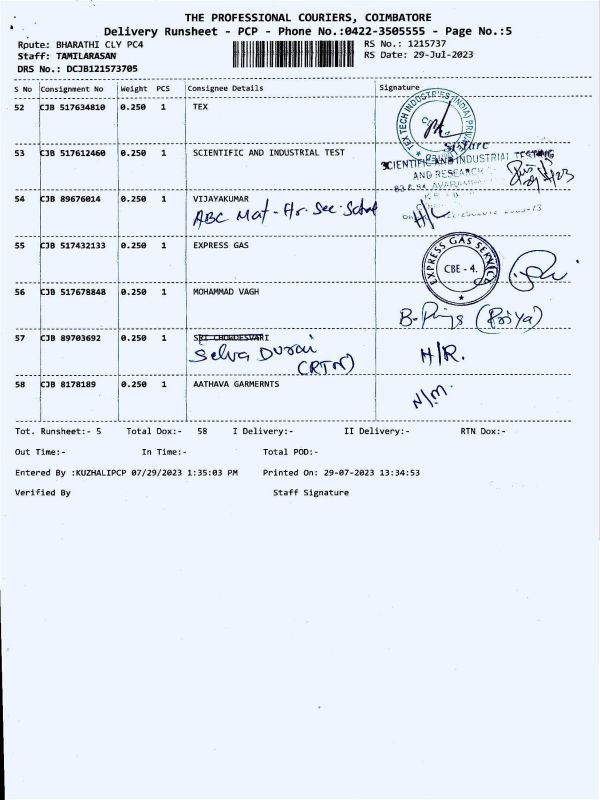 THE PROFESSIONAL COURIERS, COIMBATORE
Delivery Runsheet - PCP - Phone No.:0422-3505555 - Page No.:5
Route: BHARATHI CLY PC4 RS No.: 1215737
Staff: TAMILARASAN RS Date: 29-Jul-2023
DRS No.: DCJB121573705
S No Consignment No Weight PCS Consignee Details Signature
52 CJB 517634810 0.250 1 TEX
TEX TECH INDUSTRIES (INDIA)
53 CJB 517612460 0.250 1 SCIENTIFIC AND INDUSTRIAL TEST
SCIENTIFIC AND INDUSTRIAL TESTING
AND RESEARCH
54 CJB 89676014 0.250 1 VIJAYAKUMAR
ABC Mat-Hr. Sec. School H/L
55 CJB 517432133 0.250 1 EXPRESS GAS
EXPRESS GAS SERVICE
CBE - 4.
56 CJB 517678848 0.250 1 MOHAMMAD VAGH
(Priya)
57 CJB 89703692 0.250 1 SRI CHOWDESVARI
Selva Durai H/R.
(RTN)
58 CJB 8178189 0.250 1 AATHAVA GARMERNTS N/M.
Tot. Runsheet:- 5 Total Dox:- 58 I Delivery:- II Delivery:- RTN Dox:-
Out Time:- In Time:- Total POD:-
Entered By :KUZHALIPCP 07/29/2023 1:35:03 PM Printed On: 29-07-2023 13:34:53
Verified By Staff Signature